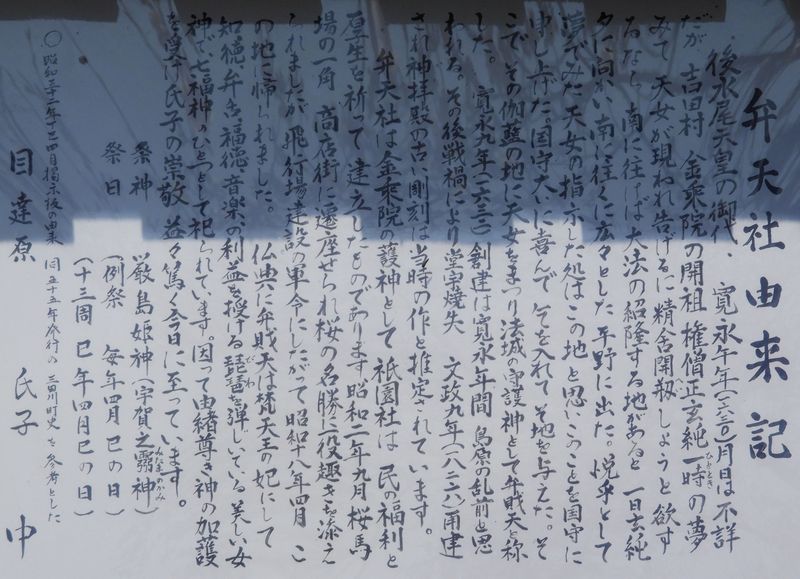 弁天社由来記
後水尾天皇の御代、寛永午年(一六三〇)月日は不詳
だが 吉田村 金乗院の開祖 権僧正玄純一時の夢
みて 天女が現われ告げるに精舎開剏しようと欲す
るなら 南に往けば大法の紹隆する地があると 一日玄純
夕に向かい南に往くに広々とした平野に出た。悦乎として
夢でみた天女の指示した処はこの地と思いこのことを国守に
申し上げた。国守大いに喜んで 令を入れて その地を与えた。そ
こで その伽藍の地に天女をまつり法城の守護神として弁財天と称
した。 寛永九年(一六三二)創建は寛永年間 島原の乱前と思
われる。その後戦禍により堂宇焼失 文政九年(一八二六)再建
され神拝殿の古い彫刻は当時の作と推定されています。
弁天社は金乗院の護神として 祇園社は 民の福利と
厚生を祈って 建立したものであります 昭和二年九月桜馬
場の一角 商店街に遷座せられ桜の名勝に一役趣きを添え
られましたが 飛行場建設の軍令にしたがって 昭和十八年四月 こ
の地に帰られました。 仏典に弁財天は梵天王の妃にして
知徳、弁舌、福徳、音楽の利益を授ける琵琶を弾じている美しい女
神で、七福神のひとつとして祀られています。因って由緒尊き神の加護
を受け氏子の崇敬 益々篤く今日に至っています。
祭神 厳島姫神(宇賀之霊神)
祭日 (例祭 毎年四月 巳の日)
(十三周 巳年四月巳の日)
〇 昭和三十二年 四月掲示後の由来 同五十五年発行の 三田川町史 を参考とした
目達原 氏子 中